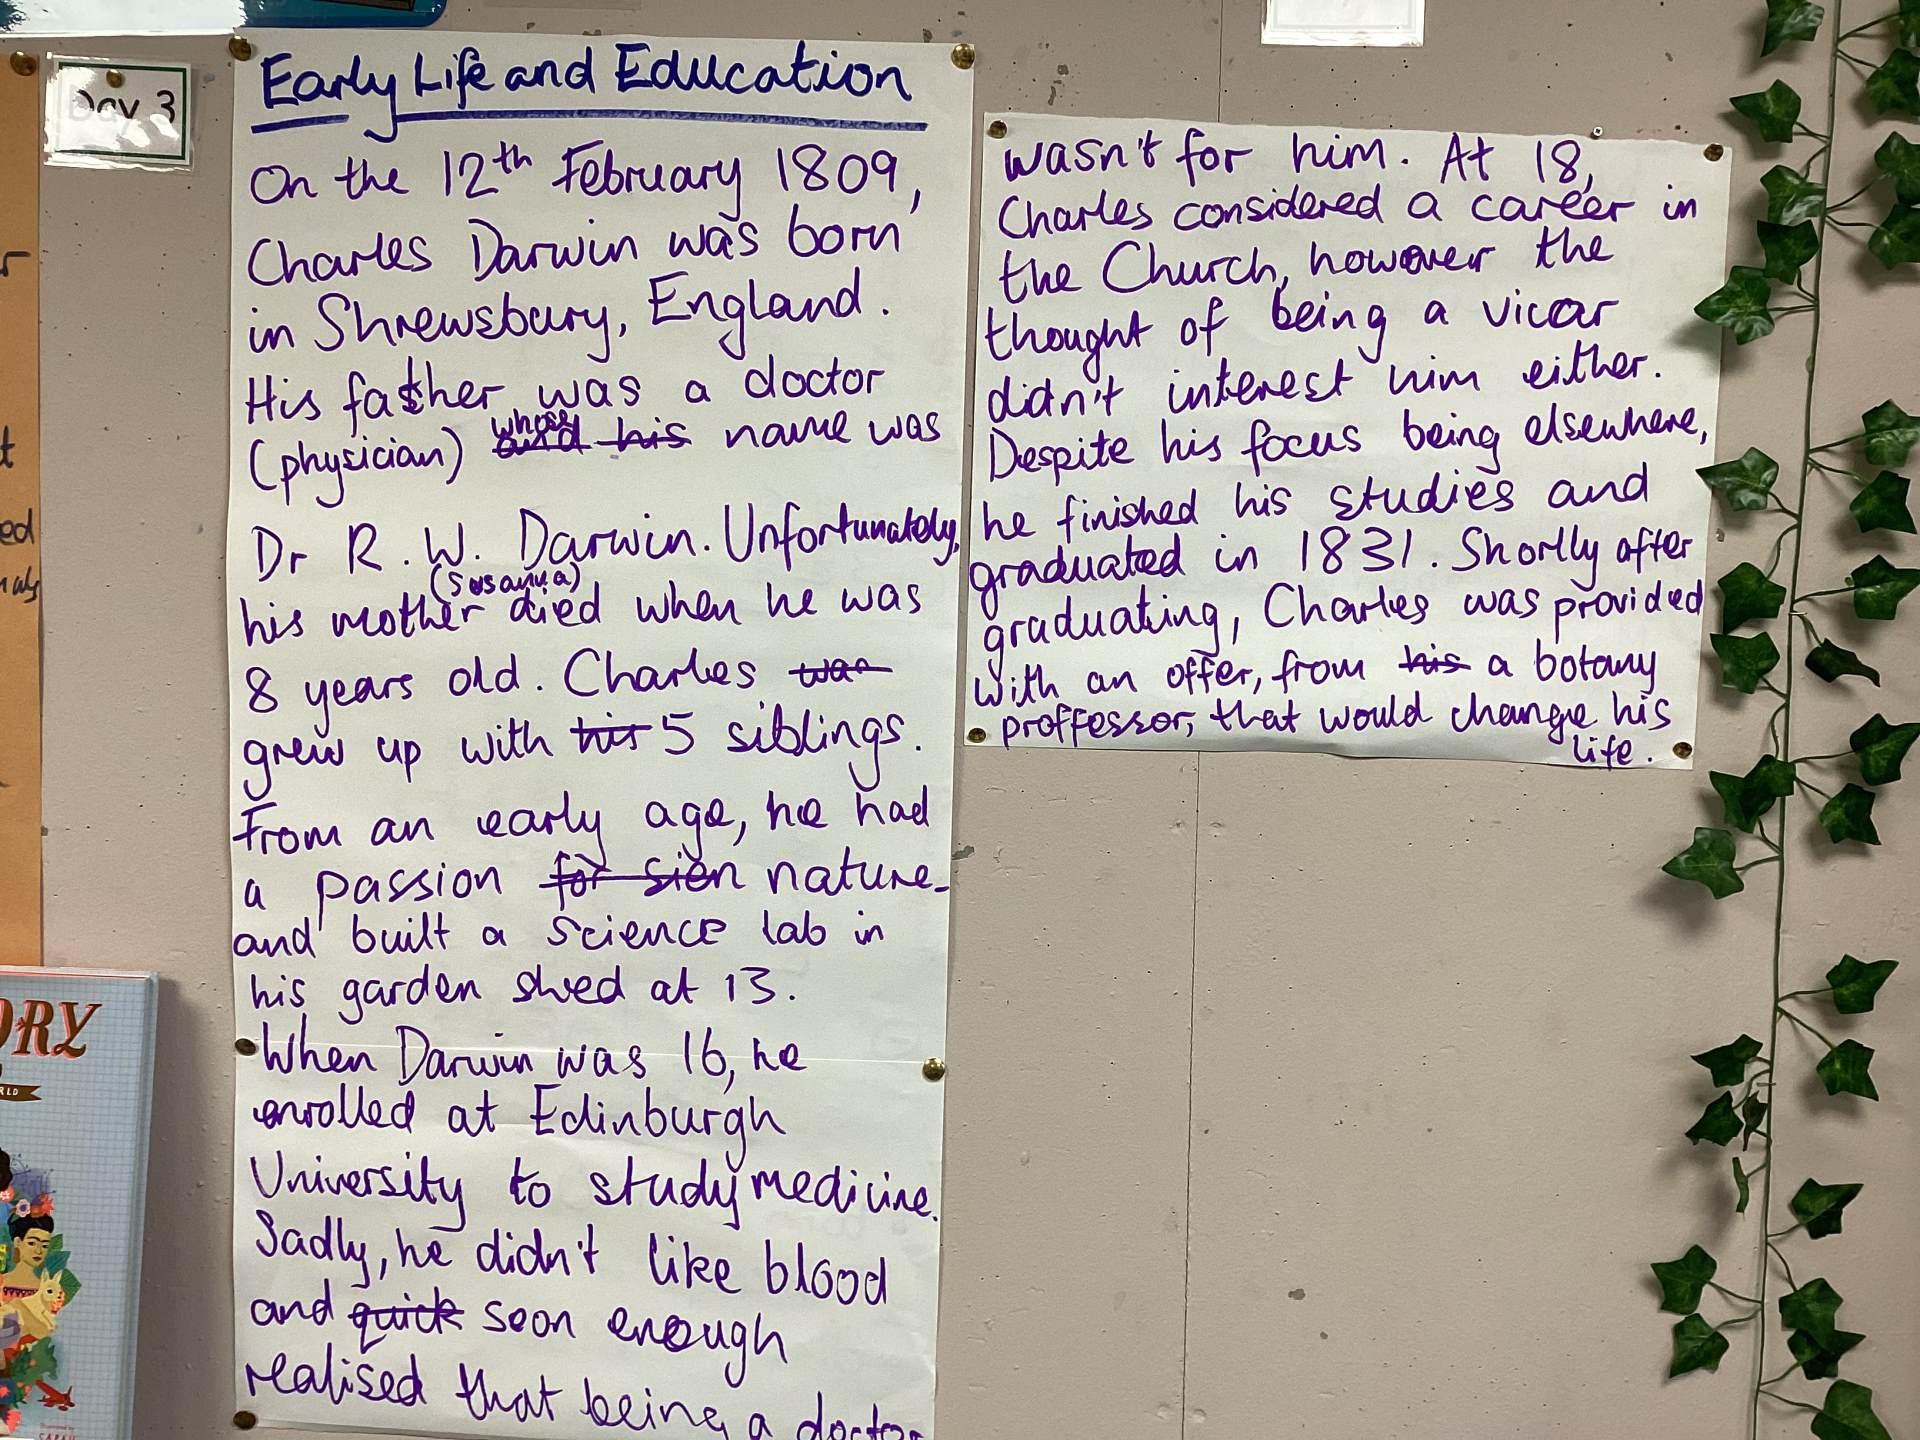 Day 3
Early Life and Education
On the 12th February 1809,
Charles Darwin was born
in Shrewsbury, England.
His father was a doctor
(physician) whose and his name was
Dr R. W. Darwin. Unfortunately,
his mother (Susanna) died when he was
8 years old. Charles was
grew up with his 5 siblings.
From an early age, he had
a passion for sien nature
and built a science lab in
his garden shed at 13.
When Darwin was 16, he
enrolled at Edinburgh
University to study medicine.
Sadly, he didn't like blood
and quick soon enough
realised that being a doctor
wasn't for him. At 18,
Charles considered a career in
the Church, however the
thought of being a vicar
didn't interest him either.
Despite his focus being elsewhere,
he finished his studies and
graduated in 1831. Shortly after
graduating, Charles was provided
with an offer, from his a botany
proffessor, that would change his
life.
ORY
RLD
ed
SARAH